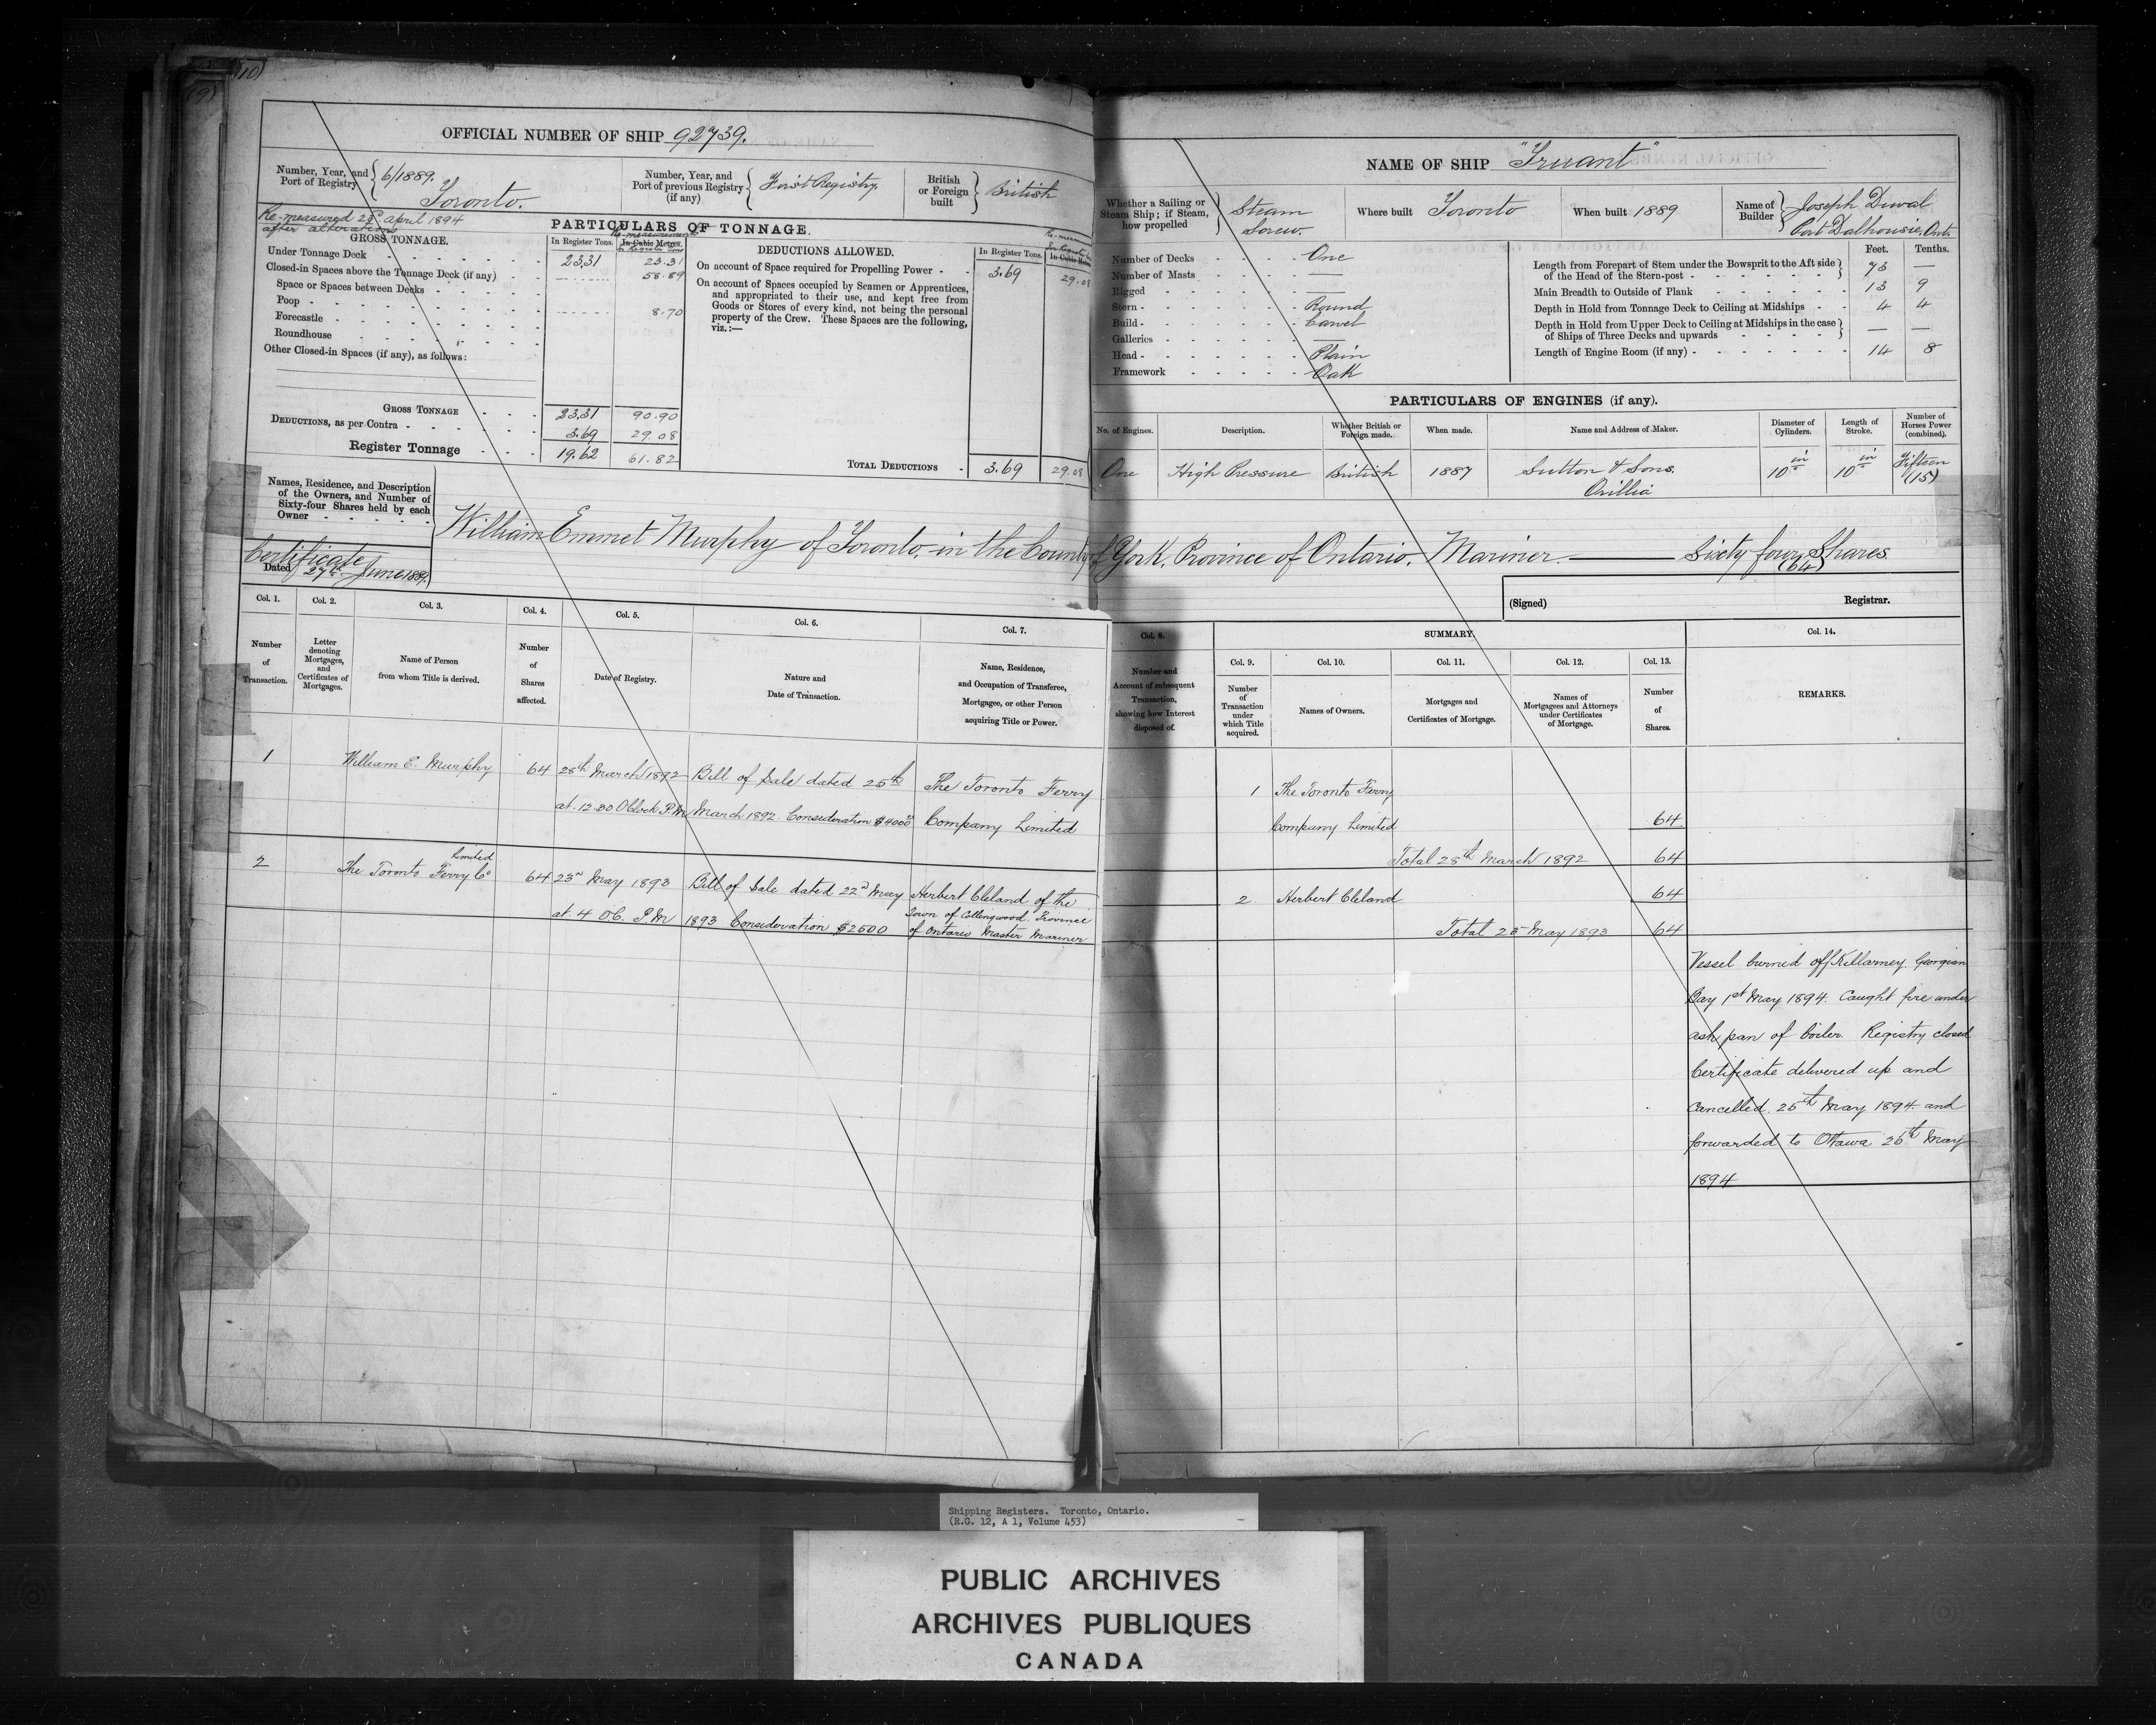 (10)
OFFICIAL NUMBER OF SHIP 92739.
Number, Year, and Port of Registry 6/1889. Toronto.
Number, Year, and Port of previous Registry (if any) First Registry,
British or Foreign built British
Re-measured 23rd April 1894 after alterations
PARTICULARS OF TONNAGE.
GROSS TONNAGE. In Register Tons. In Cubic Metres. Re-measurement In Register Tons
Under Tonnage Deck 23.31 23.31
Closed-in Spaces above the Tonnage Deck (if any) 58.89
Space or Spaces between Decks
Poop 8.70
Forecastle
Roundhouse
Other Closed-in Spaces (if any), as follows:
GROSS TONNAGE 23.31 90.90
DEDUCTIONS, as per Contra 3.69 29.08
Register Tonnage 19.62 61.82
DEDUCTIONS ALLOWED. In Register Tons.
On account of Space required for Propelling Power 3.69 29.08
On account of Spaces occupied by Seamen or Apprentices,
and appropriated to their use, and kept free from
Goods or Stores of every kind, not being the personal
property of the Crew. These Spaces are the following,
viz.:—
TOTAL DEDUCTIONS 3.69 29.08
NAME OF SHIP "Truant"
Whether a Sailing or Steam Ship; if Steam, how propelled Steam Screw
Where built Toronto
When built 1889
Name of Builder Joseph Duval Port Dalhousie, Ont.
Number of Decks One
Number of Masts —
Rigged —
Stern Round
Build Carvel
Galleries —
Head Plain
Framework Oak
Feet. Tenths.
Length from Forepart of Stem under the Bowsprit to the Aft side
of the Head of the Stern-post 73 —
Main Breadth to Outside of Plank 13 9
Depth in Hold from Tonnage Deck to Ceiling at Midships 4 4
Depth in Hold from Upper Deck to Ceiling at Midships in the case
of Ships of Three Decks and upwards — —
Length of Engine Room (if any) 14 8
PARTICULARS OF ENGINES (if any).
No. of Engines. Description. Whether British or Foreign made. When made. Name and Address of Maker. Diameter of Cylinders. Length of Stroke. Number of Horses Power (combined).
One High Pressure British 1887 Sutton & Sons. Orillia 10 in 10 in Fifteen (15)
Names, Residence, and Description
of the Owners, and Number of
Sixty-four Shares held by each
Owner
William Emmet Murphy of Toronto, in the County of York, Province of Ontario. Mariner. Sixty four Shares (64)
Certificate
Dated 27th June 1889.
(Signed) Registrar.
Col. 1. Col. 2. Col. 3. Col. 4. Col. 5. Col. 6. Col. 7. Col. 8. SUMMARY. Col. 14.
Col. 9. Col. 10. Col. 11. Col. 12. Col. 13.
Number of Transaction.
Letter denoting Mortgages, and Certificates of Mortgages.
Name of Person from whom Title is derived.
Number of Shares affected.
Date of Registry.
Nature and Date of Transaction.
Name, Residence, and Occupation of Transferee, Mortgagee, or other Person acquiring Title or Power.
Number and Account of subsequent Transaction, showing how Interest disposed of.
Number of Transaction under which Title acquired.
Names of Owners.
Mortgages and Certificates of Mortgage.
Names of Mortgagees and Attorneys under Certificates of Mortgage.
Number of Shares.
REMARKS.
1 William E. Murphy 64 28th March 1892 Bill of Sale dated 25th The Toronto Ferry
at 12.30 OClock P.M. March 1892. Consideration $4000 Company Limited
1 The Toronto Ferry
Company Limited 64
Total 28th March 1892 64
2 The Toronto Ferry Co Limited 64 23rd May 1893 Bill of Sale dated 22nd May Herbert Cleland of the
at 4 OC. P.M 1893 Consideration $2500 Town of Collingwood Province
of Ontario Master Mariner
2 Herbert Cleland 64
Total 23 May 1893 64
Vessel burned off Killarney. Georgian
Bay 1st May 1894. Caught fire under
ash pan of boiler. Registry closed
Certificate delivered up and
cancelled 25th May 1894 and
forwarded to Ottawa 26th May
1894
Shipping Registers. Toronto, Ontario.
(R.G. 12, A 1, Volume 453)
PUBLIC ARCHIVES
ARCHIVES PUBLIQUES
CANADA